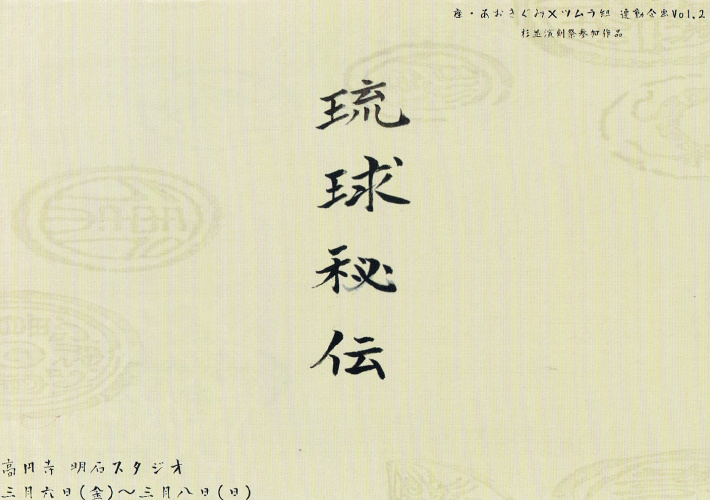 座・あおきぐみ×ツムラ組 連動企画Vol.2
杉並演劇祭参加作品
琉球秘伝
高円寺 明石スタジオ
三月六日(金)～三月八日(日)